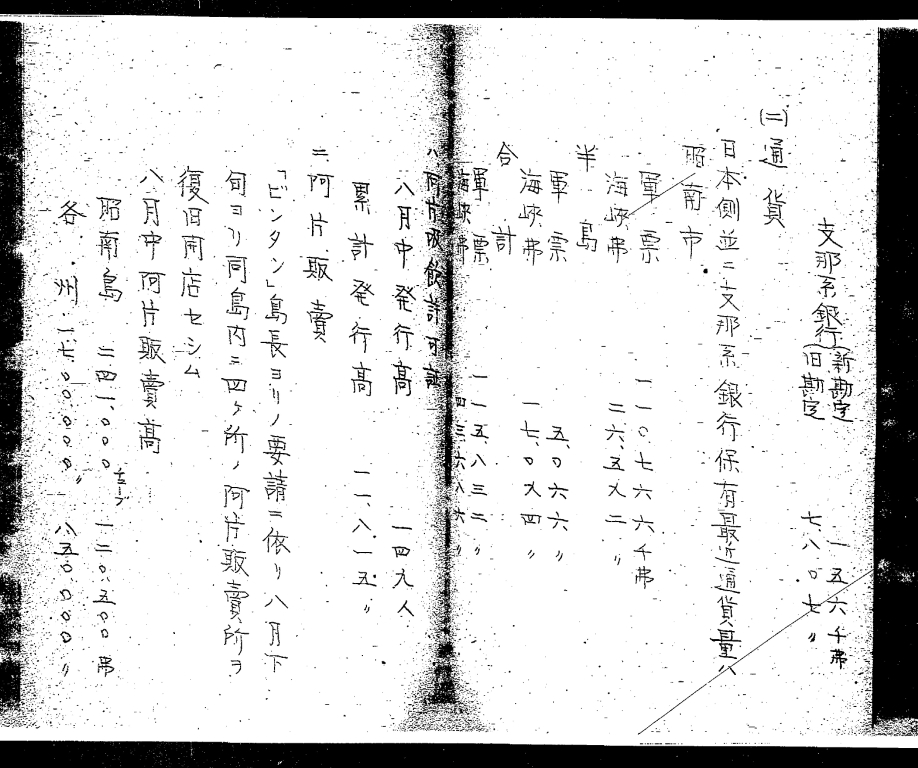 支那系銀行(新勘定 一五六千弗
(旧勘定 七八〇七〃
(二)通貨
日本側並ニ支那系銀行保有最近通貨量ハ
昭南市
軍票 一一〇七六六千弗
海峡弗 二六、五九二〃
半島
軍票 五、〇六六〃
海峡弗 一七、〇九四〃
合計
軍票 一一五、八三二〃
海峡弗 四三、六八六〃
ハ 阿片吸飲許可証
八月中発行高 一四九人
累計発行高 一一、八一五〃
ニ 阿片販賣
「ビンタン」島長ヨリノ要請ニ依リ八月下
旬ヨリ同島内ニ四ヶ所ノ阿片販賣所ヲ
復旧開店セシム
八月中阿片販賣高
昭南島 二四一、〇〇〇チューブ 一二〇、五〇〇弗
各州 一、七〇〇、〇〇〇〃 八五〇、〇〇〇〃